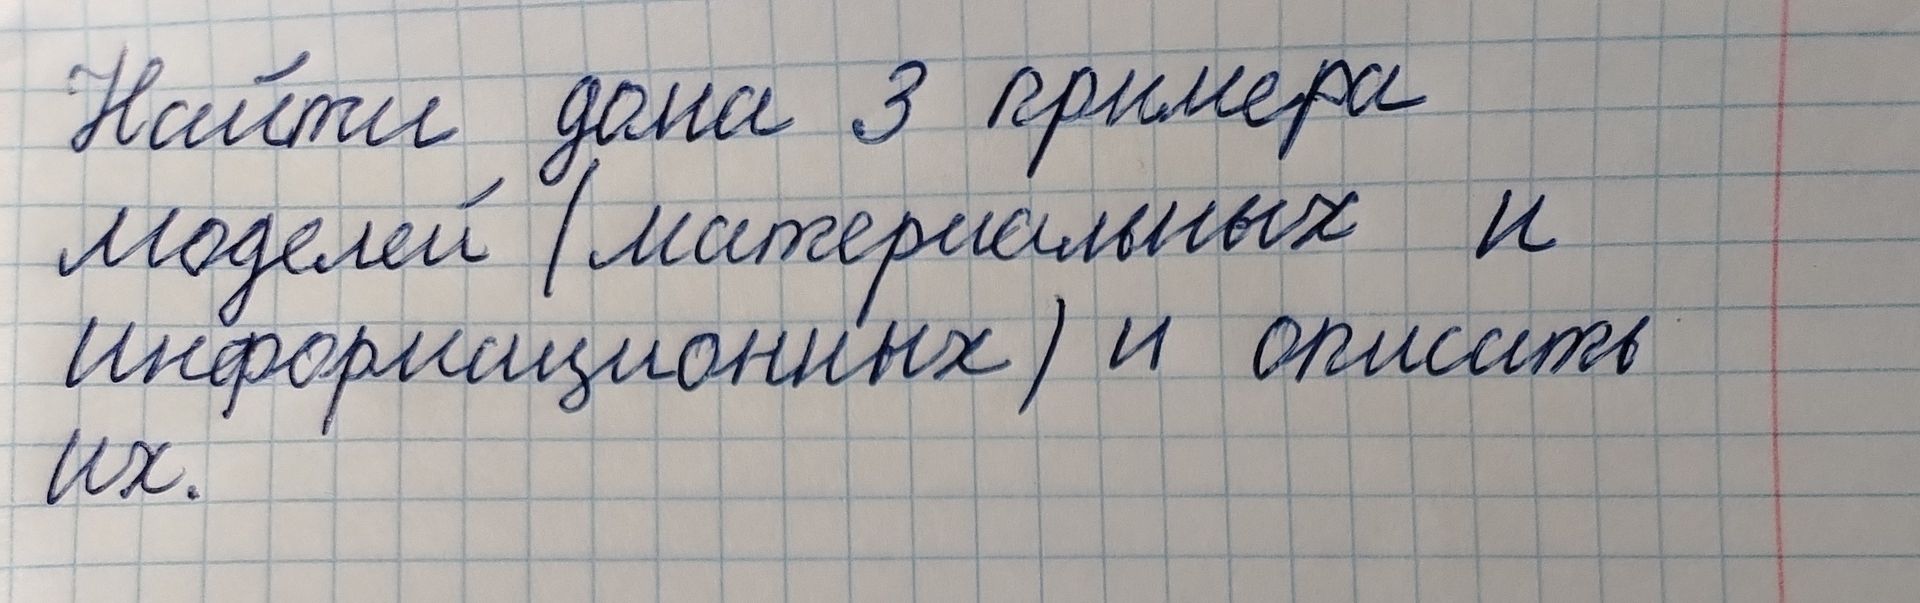 Найти дома 3 примера
моделей (материальных и
информационных) и описать
их.